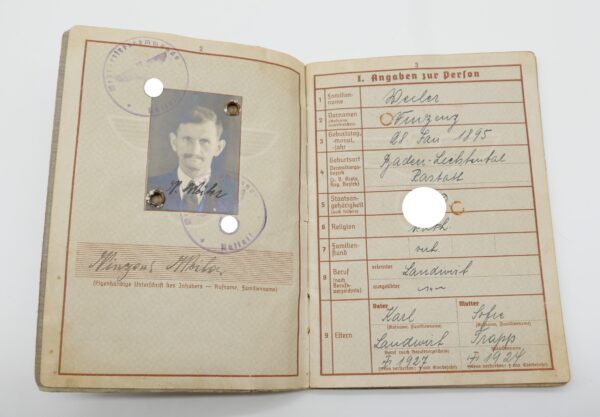 2
Rastatt
Weiler
Rastatt
Vinzenz Weiler
(Eigenhändige Unterschrift des Inhabers — Rufname, Familienname)
3
I. Angaben zur Person
1 Familien-
name
Weiler
2 Vornamen
Vinzenz
3 Geburtstag,
-monat,
-jahr
28. Jan. 1895
4 Geburtsort
Verwaltungs-
bezirk
Baden-Lichtental
(z. B. Kreis,
Reg. Bezirk)
Rastatt
5 Staatsan-
gehörigkeit
(auch frühere)
6 Religion
kath
7 Familien-
stand
verh.
8 Beruf
(nach
Berufs-
verzeichnis)
erlernter
Landwirt
ausgeübter
9 Eltern
Vater
Karl
(Rufname, Familienname)
Landwirt
Beruf (nach Berufsverzeichnis)
† 1927
(wenn verstorben: † und Sterbejahr)
Mutter
Sofie
(Rufname, Familienname)
Trapp
(Mädchenname)
† 1924
(wenn verstorben: † und Sterbejahr)